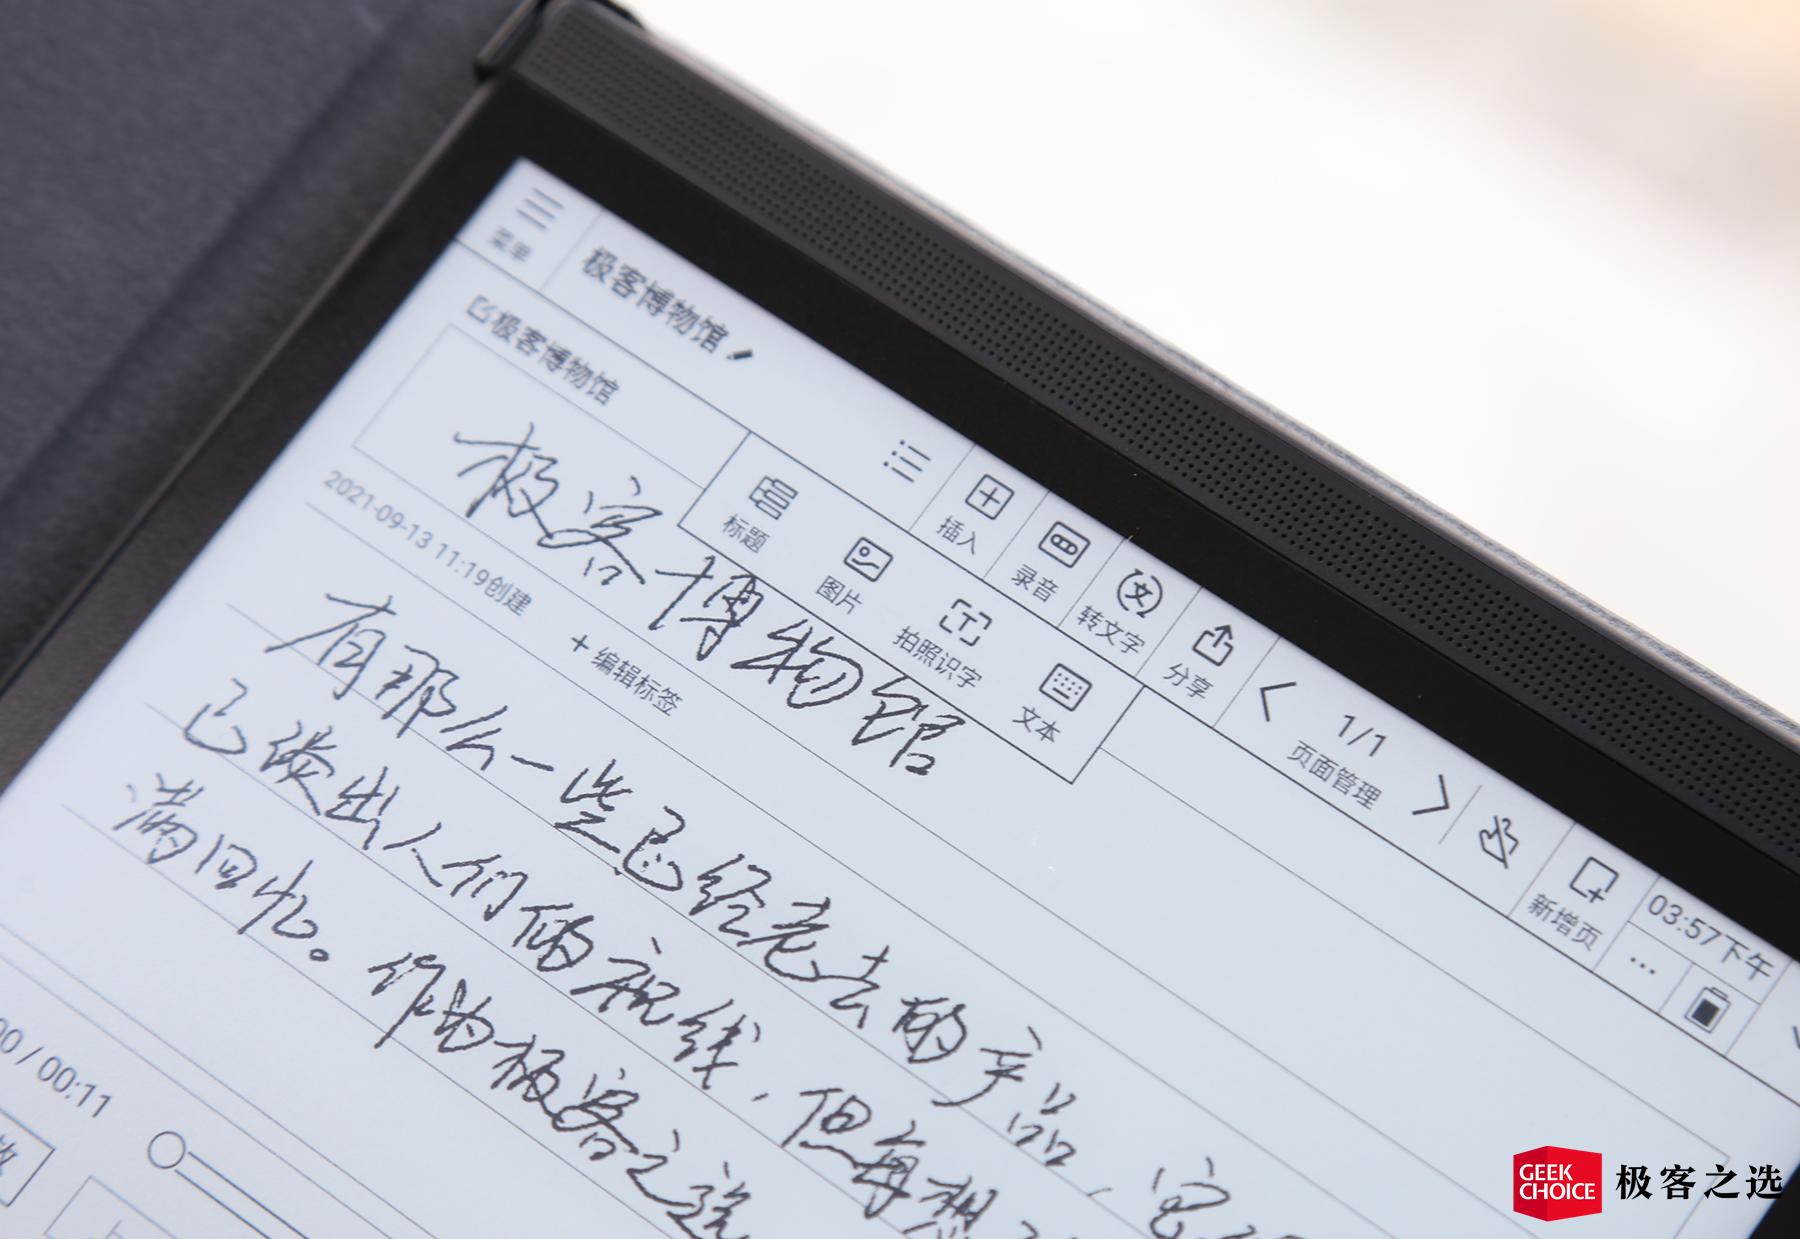 菜单
极客博物馆
插入
录音
转文字
分享
1/1
页面管理
新增页
03:57下午
极客博物馆
标题
图片
拍照识字
文本
极客博物馆
2021-09-13 11:19创建
+ 编辑标签
有那么一些已经老去的产品，它
已淡出人们的视线，但每想
满回忆。作为极客之选
00 / 00:11
GEEK
CHOICE
极客之选